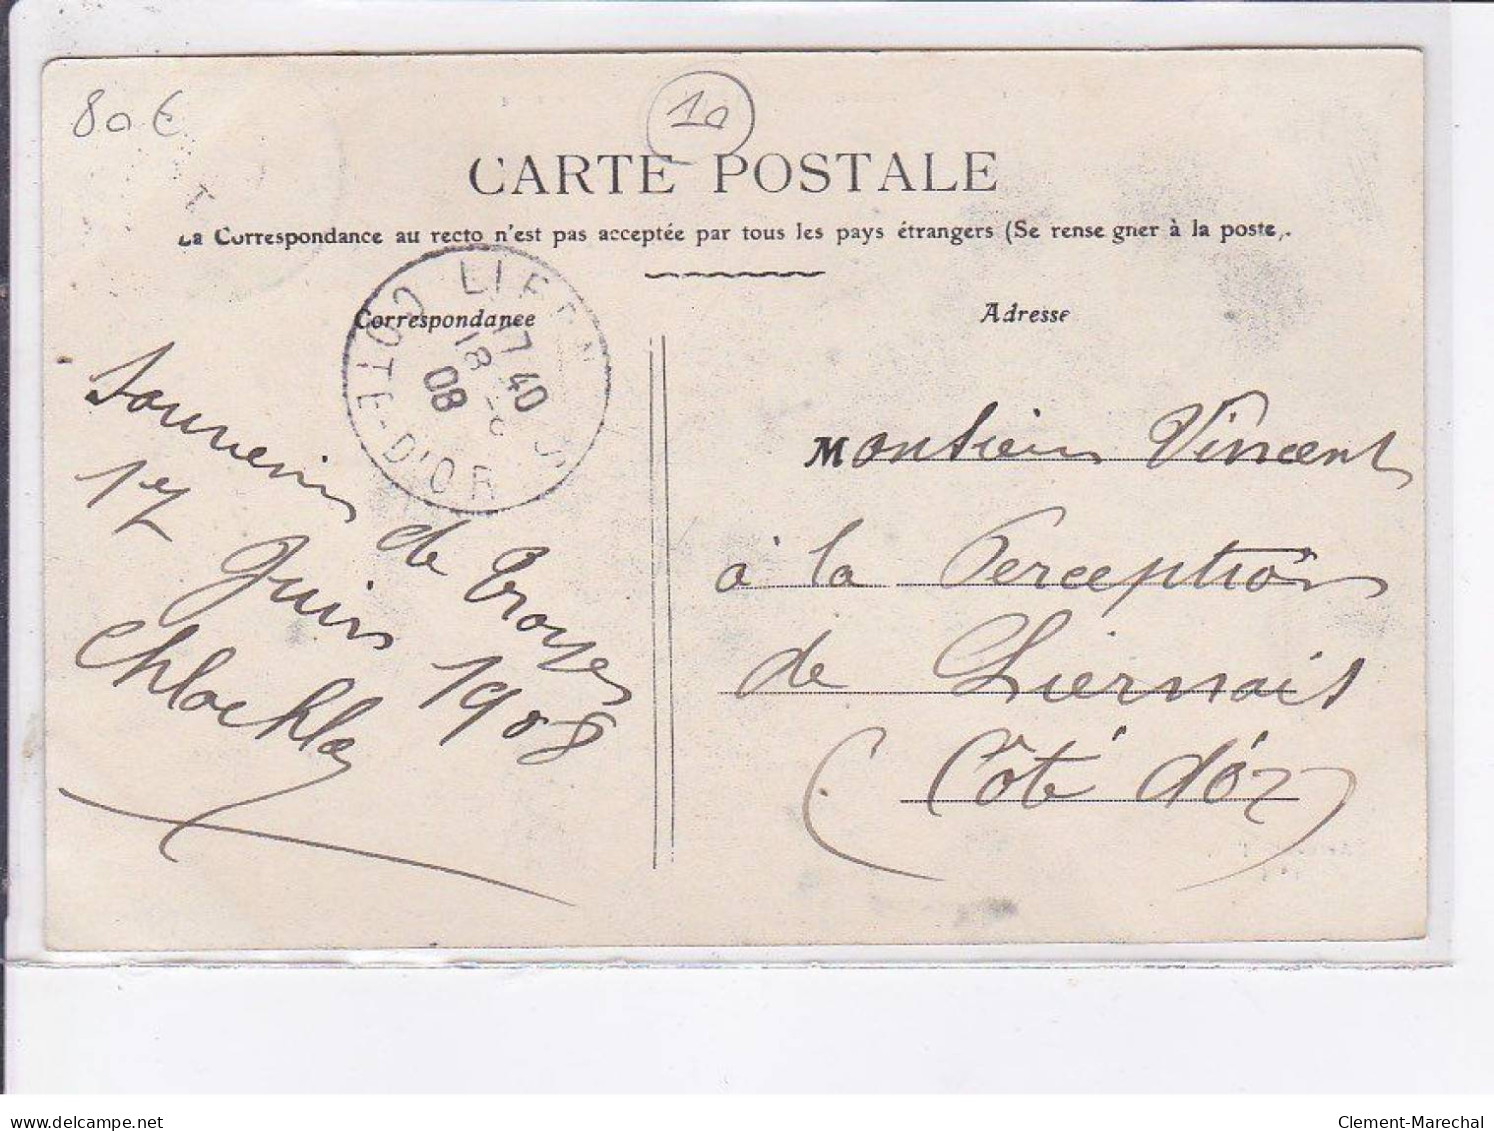 80 €
10
CARTE POSTALE
La Correspondance au recto n'est pas acceptée par tous les pays étrangers (Se renseigner à la poste).
Correspondance
Adresse
COTE-D'OR
17 40
18 -6
08
Souvenir de Troyes
17 Juin 1908
Monsieur Vincent
à la Perception
de Liernais
(Côte d'Or)
delcampe.net
Clement-Marechal